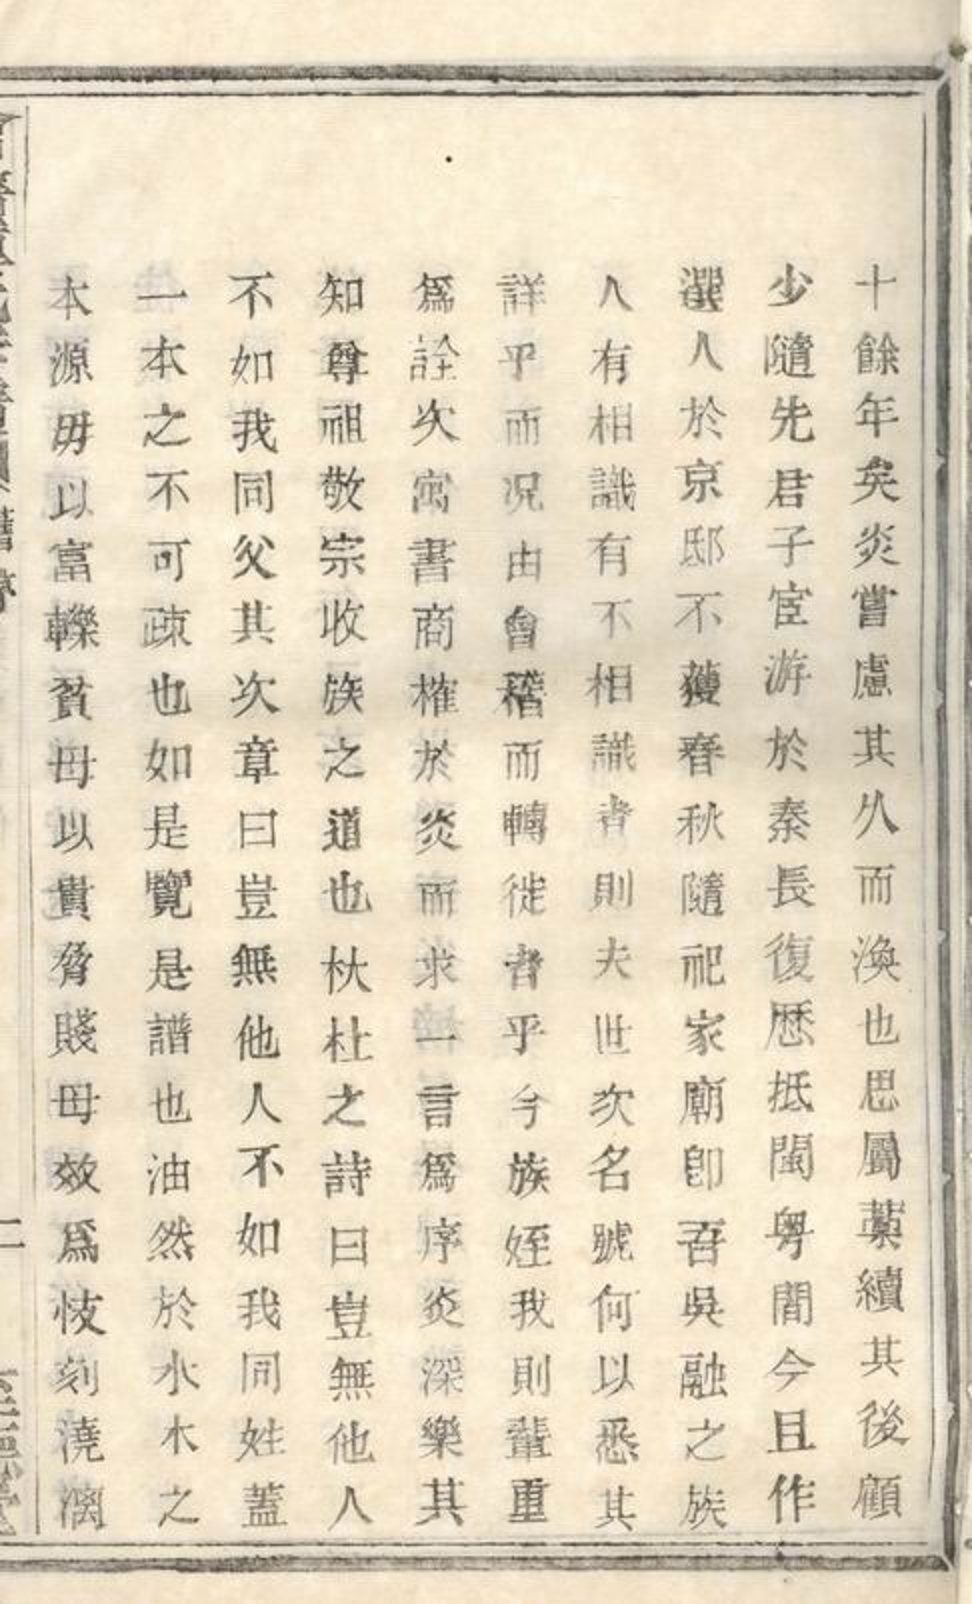 十餘年矣炎嘗慮其久而渙也思屬藁續其後顧
少隨先君子宦游於秦長復歷抵閩粤間今且作
選人於京邸不獲春秋隨祀家廟卽吾吳融之族
人有相識有不相識者則夫世次名號何以悉其
詳乎而況由會稽而轉徙者乎今族姪我則輩重
爲詮次寓書商榷於炎而求一言爲序炎深樂其
知尊祖敬宗收族之道也杕杜之詩曰豈無他人
不如我同父其次章曰豈無他人不如我同姓蓋
一本之不可疎也如是覽是譜也油然於水木之
本源毋以富轢貧毋以貴脅賤毋效爲忮刻澆漓
譜序
二